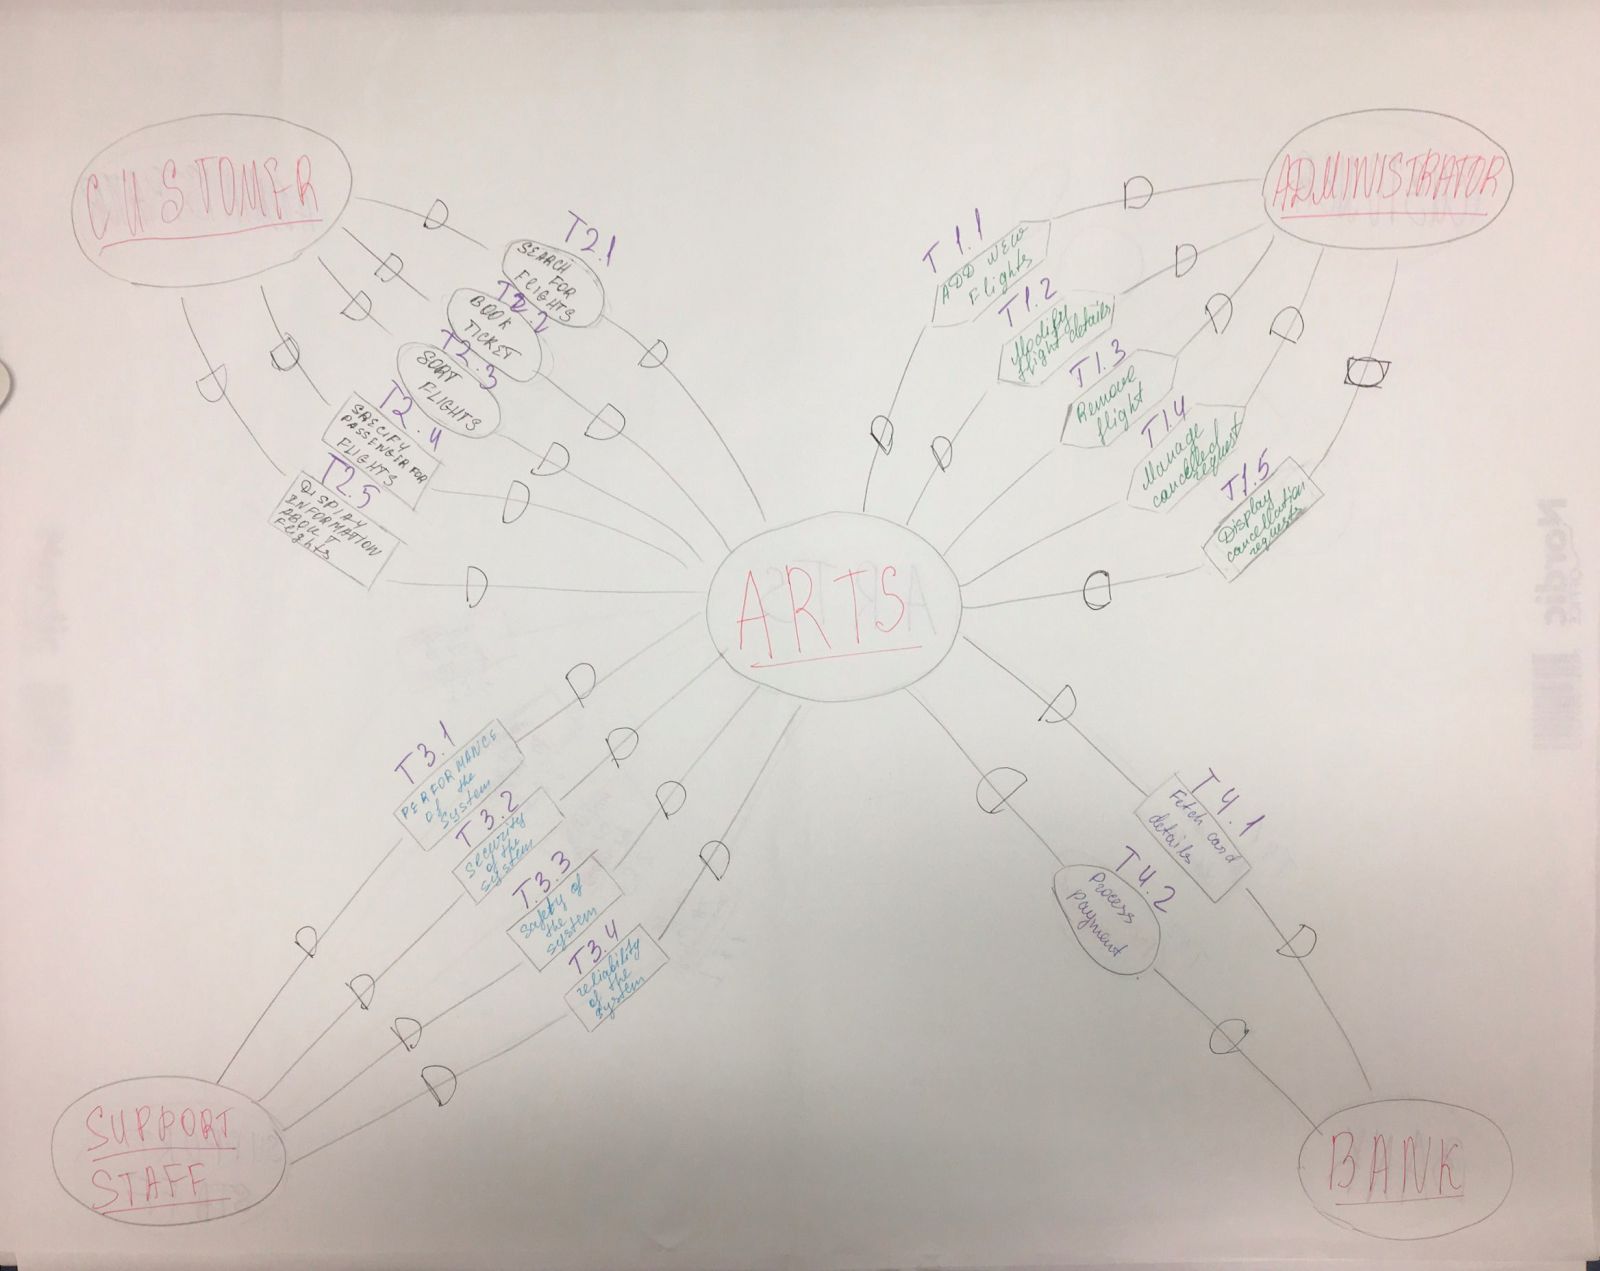 CUSTOMER
T2.1
SEARCH
FOR
FLIGHTS
T2.2
BOOK
TICKET
T2.3
SORT
FLIGHTS
T2.4
SPECIFY
PASSENGER FOR
FLIGHTS
T2.5
DISPLAY
INFORMATION
ABOUT
flights
ADMINISTRATOR
T1.1
ADD NEW
Flights
T1.2
Modify
flight details
T1.3
Remove
flight
T1.4
Manage
cancelled
request
T1.5
Display
cancellation
requests
ARTS
T3.1
PERFORMANCE
of the
system
T3.2
security
of the
system
T3.3
safety of
the
system
T3.4
reliability
of the
system
T4.1
Fetch card
details
T4.2
Process
payment
SUPPORT
STAFF
BANK
Nordic